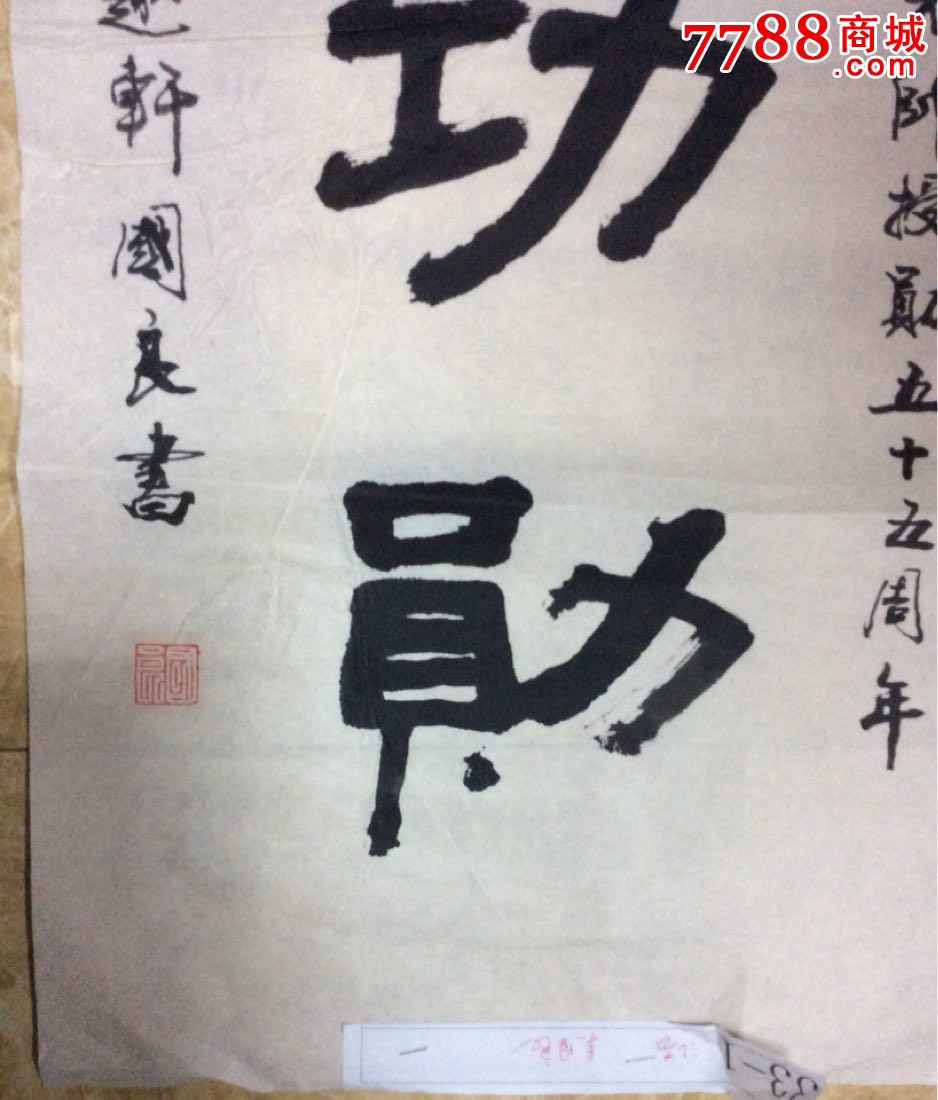 帥授勛五十五周年
功勛
軒國良書
7788商城
.com
33-1